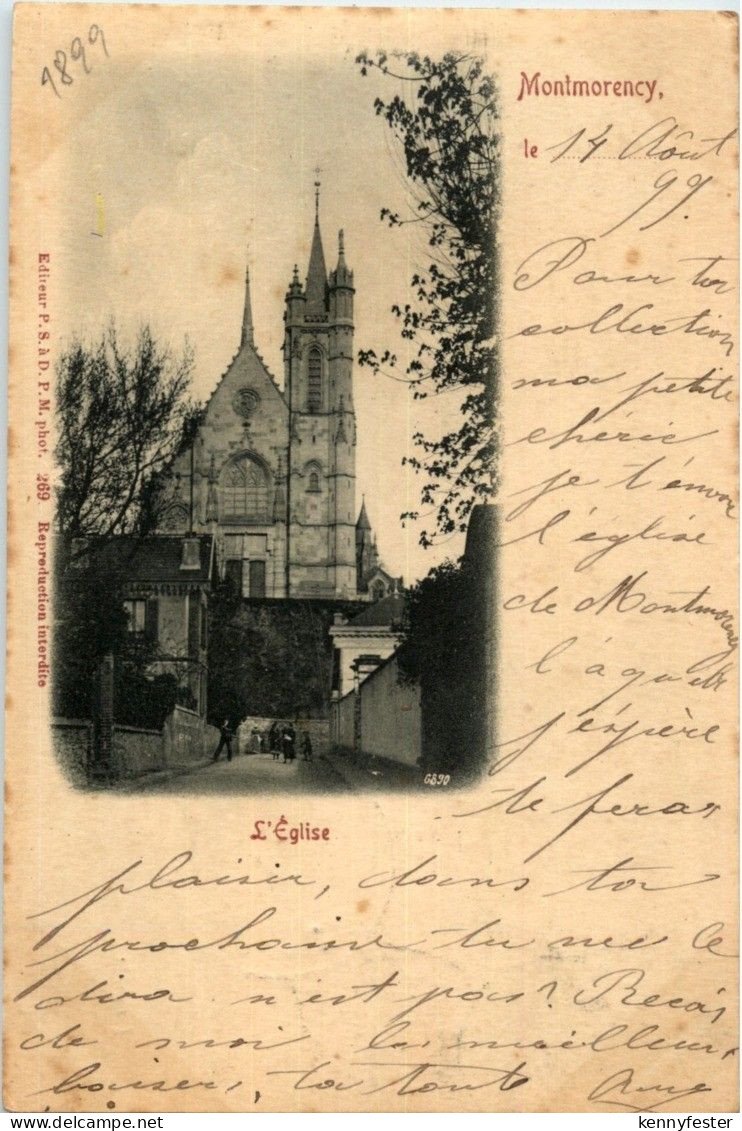 1899
Montmorency,
le 14 Août
99.
Pour ta
collection
ma petite
chérie
je t'envoie
l'église
de Montmorency
j'espère
te feras
plaisir, dans ta
prochaine tu me le
dira n'est pas? Reçois
de moi les meilleurs
baisers, ta tante
Editeur P. S. à D. P. M. phot. 269 Reproduction interdite
6890
L'Église
kennyfester
Delcampe.net